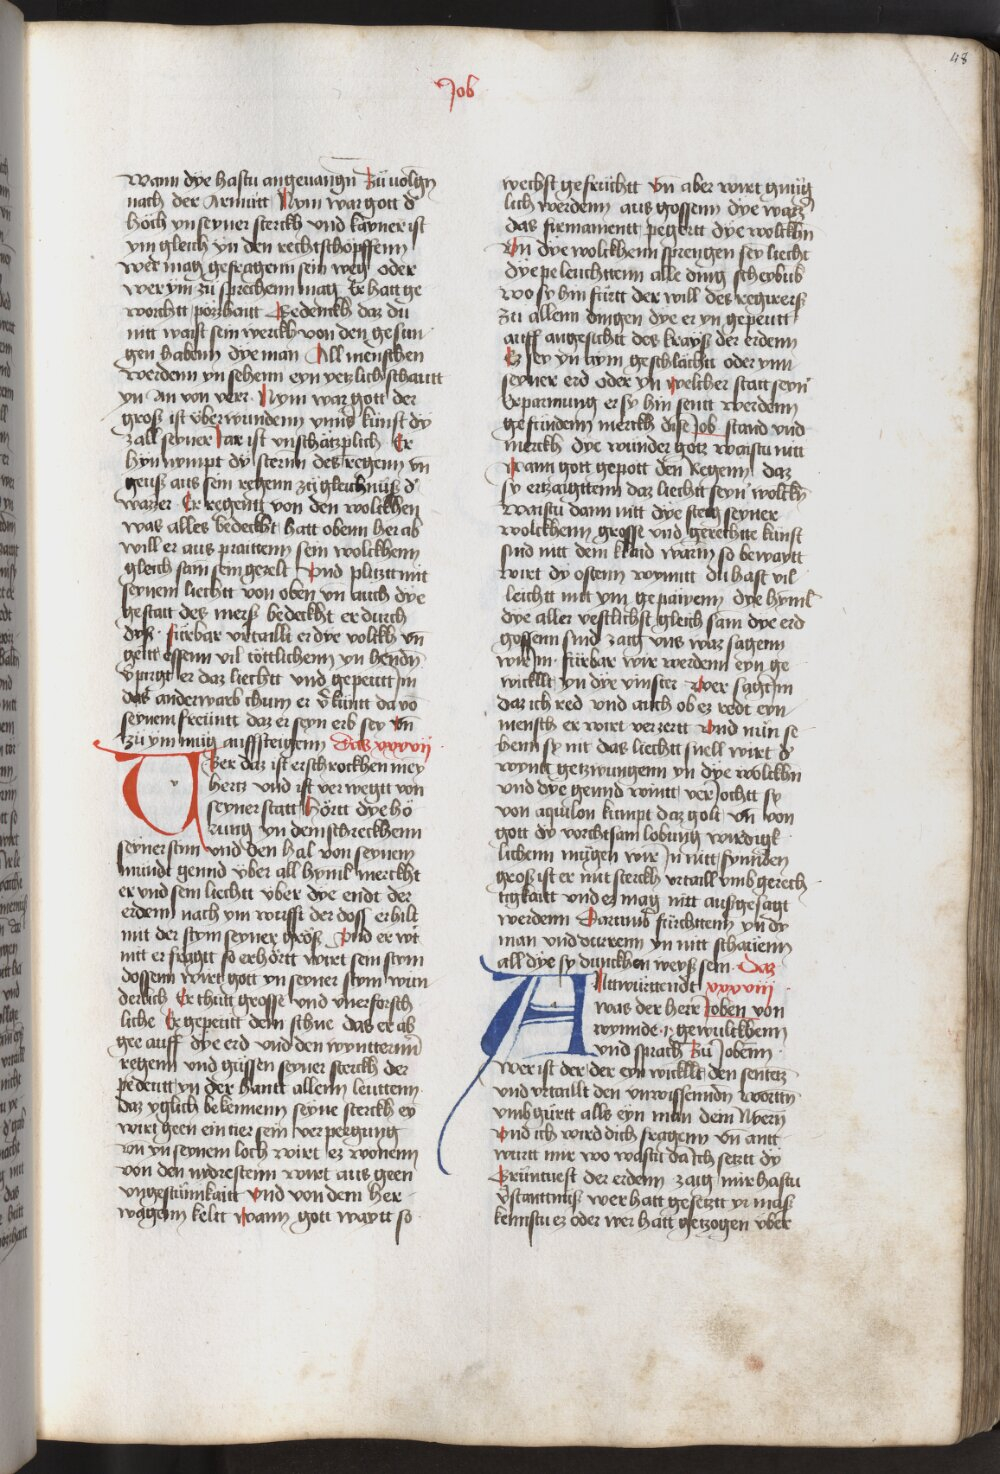 48
Job
wann dye hastu angeuangn Zu uolgn
nach der Armutt Nym war gott d
höch yn seyner sterckh vnd kayner ist
ym gleich yn den rechtschöpffenn
wer mag gefragenn sein weg oder
wer ym zü sprechenn mag Er hatt ge
worchtt pözhaitt Bedenckh daz du
nitt waist sein werckh von den gesun
gen habenn dye man All menschen
werdenn yn sehenn eyn yetzlich schautt
yn An von verr Nym war gott der
groß ist vberwundenn vnns künst dy
zall seyner Jar ist vnschätzplich Er
hyn nympt dy sternn des regenn vn
geuß aus sein regenn zü gleichnüß d
wazzer Er regentt von den wolckhen
was alles bedeckht hatt obenn her ab
will er aus praittenn sein wolckhenn
gleich sam sein gezelt Vnd plitzt mit
seynem liechtt von oben vn auch dye
gestatt des mers bedeckht er durch
dyß fürbar vrtailli er dye volckh vn
geitt essenn vil töttlichenn yn hendn
Vpirgt er daz liechtt vnd gepeutt im
das anderwarb chum er v̄kuntt da vō
seynem freuntt daz er seyn erb sey Vn
zü ym mug auffsteigenn Das xxxvii
Vber daz ist erschrockhen mey
hertz vnd ist verwegtt von
seyner statt Hörtt dye hö
rung yn dem schreckhenn
seyner stim vnd den hal von seynem
mündt gennd Vber all hyml merckht
er vnd sein liechtt vber dye endt der
erdenn nach ym wirfft der doss er hilt
mit der stym seyner größ Vnd er wt
nitt er fragtt so erhörtt wirt sein stym
dossenn wirt gott yn seyner stym wun
derlich Er thütt grosse vnd vnerforsch
liche Er gepeutt dem schne das er ab
gee auff dye erd vnd den wyntterinn
regenn vnd güssen seyner sterckh der
pedeutt yn der hantt allenn leuttenn
daz yglich bekennenn seyne sterckh ey
wirt geen ein tier sein verpergung
vn yn seynem loch wirt ez wonenn
von den nydrestenn wirt aus geen
vngestümkaitt Vnd von dem her
wagenn keltt Wann gott waytt so
wechst gefrüchtt Vn aber wirt gnüg
lich werdenn aus gossenn dye wazz
das firmamentt pegertt dye wolckhn
Vn dye wolckhenn sprengen sey liecht
dye peleuchttenn alle ding scheybüb
wo sy hin fürtt der will des regirers
zü allenn dingen dye er yn gepeutt
auff angesichtt des krayß der erdenn
Ez sey yn aym geschlächtt oder ynn
seyner erd oder yn welcher statt seyn
beparmung er sy hin sentt werdenn
gefündenn merckh dise Job stand vnd
merckh dye wunder gotz waistu nitt
Wann gott gepott den Regenn daz
sy ertzaigttenn daz liechtt seyn wolckn
waistu dann nitt dye steig seyner
wolckhenn grosse vnd gerechtte künst
sind nitt dem klaid warm so bewaytt
wirt dy osten wymitt du hast vil
leichtt mit ym gepawenn dye hyml
dye aller vestlichst gleich sam dye erd
gossenn sind zaig vns waz sagenn
wir im fürbar wir werdenn eyn ge
wicklt yn dye vinster Wer sagt im
daz ich red vnd auch ob ez redt eyn
mensch er wirt verzertt Vnd nün se
henn sy nit das liechtt snell wirt d
wyntt getzwungenn yn dye wolckhn
vnd dye gennd wintt verJochtt sy
von aquilon kumpt daz golt vn von
gott dy vorchtsam lobung wirdigk
lichenn mügen wir Jn nitt fynnden
groß ist er mit sterckh vrtaill vmb gerech
tigkaitt vnd ez mag nitt ausgesagt
werdenn Darumb fürchttenn yn dy
man vnd turrenn yn nitt schawenn
all dye sy dunckhen weyß sein Daz
Anttwürttendt xxxviii
was der herr Joben von
wynnde yn gewulckhenn
vnd sprach Zü Jobenn
Wer ist der der eyn wicklt den sentetz
vnd vrtailt den vnwissenndn worttn
vmb gürtt alls eyn man dem lbern
Vnd ich wird dich fragenn vn antt
wurtt mir wo wastu da ich setztt dy
Gruntuest der erdenn zaig mir hastu
v̄stanttnüß wer hatt gesetztt yr maß
kennstu ez oder wer hatt getzogen vber